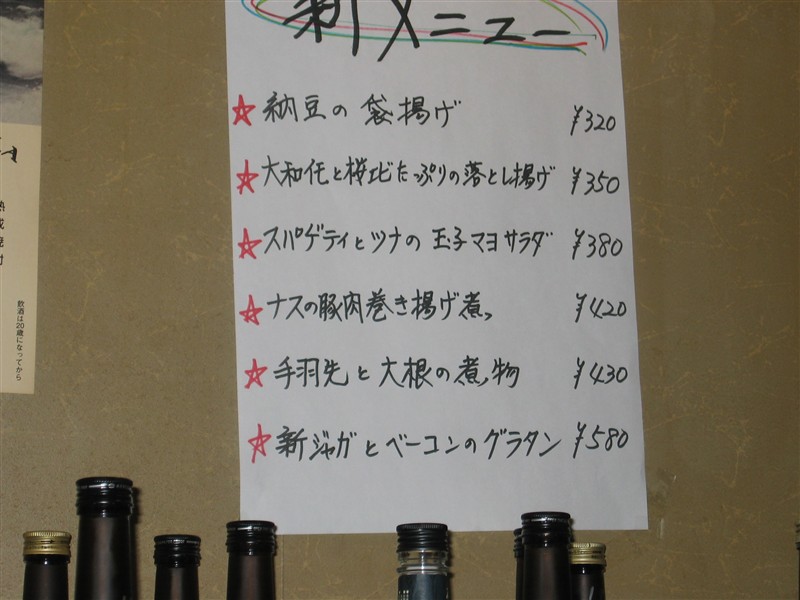 新メニュー
☆納豆の袋揚げ ¥320
☆大和芋と桜エビたっぷりの落とし揚げ ¥350
☆スパゲティとツナの玉子マヨサラダ ¥380
☆ナスの豚肉巻き揚げ煮 ¥420
☆手羽先と大根の煮物 ¥430
☆新ジャガとベーコンのグラタン ¥580
飲酒は20歳になってから